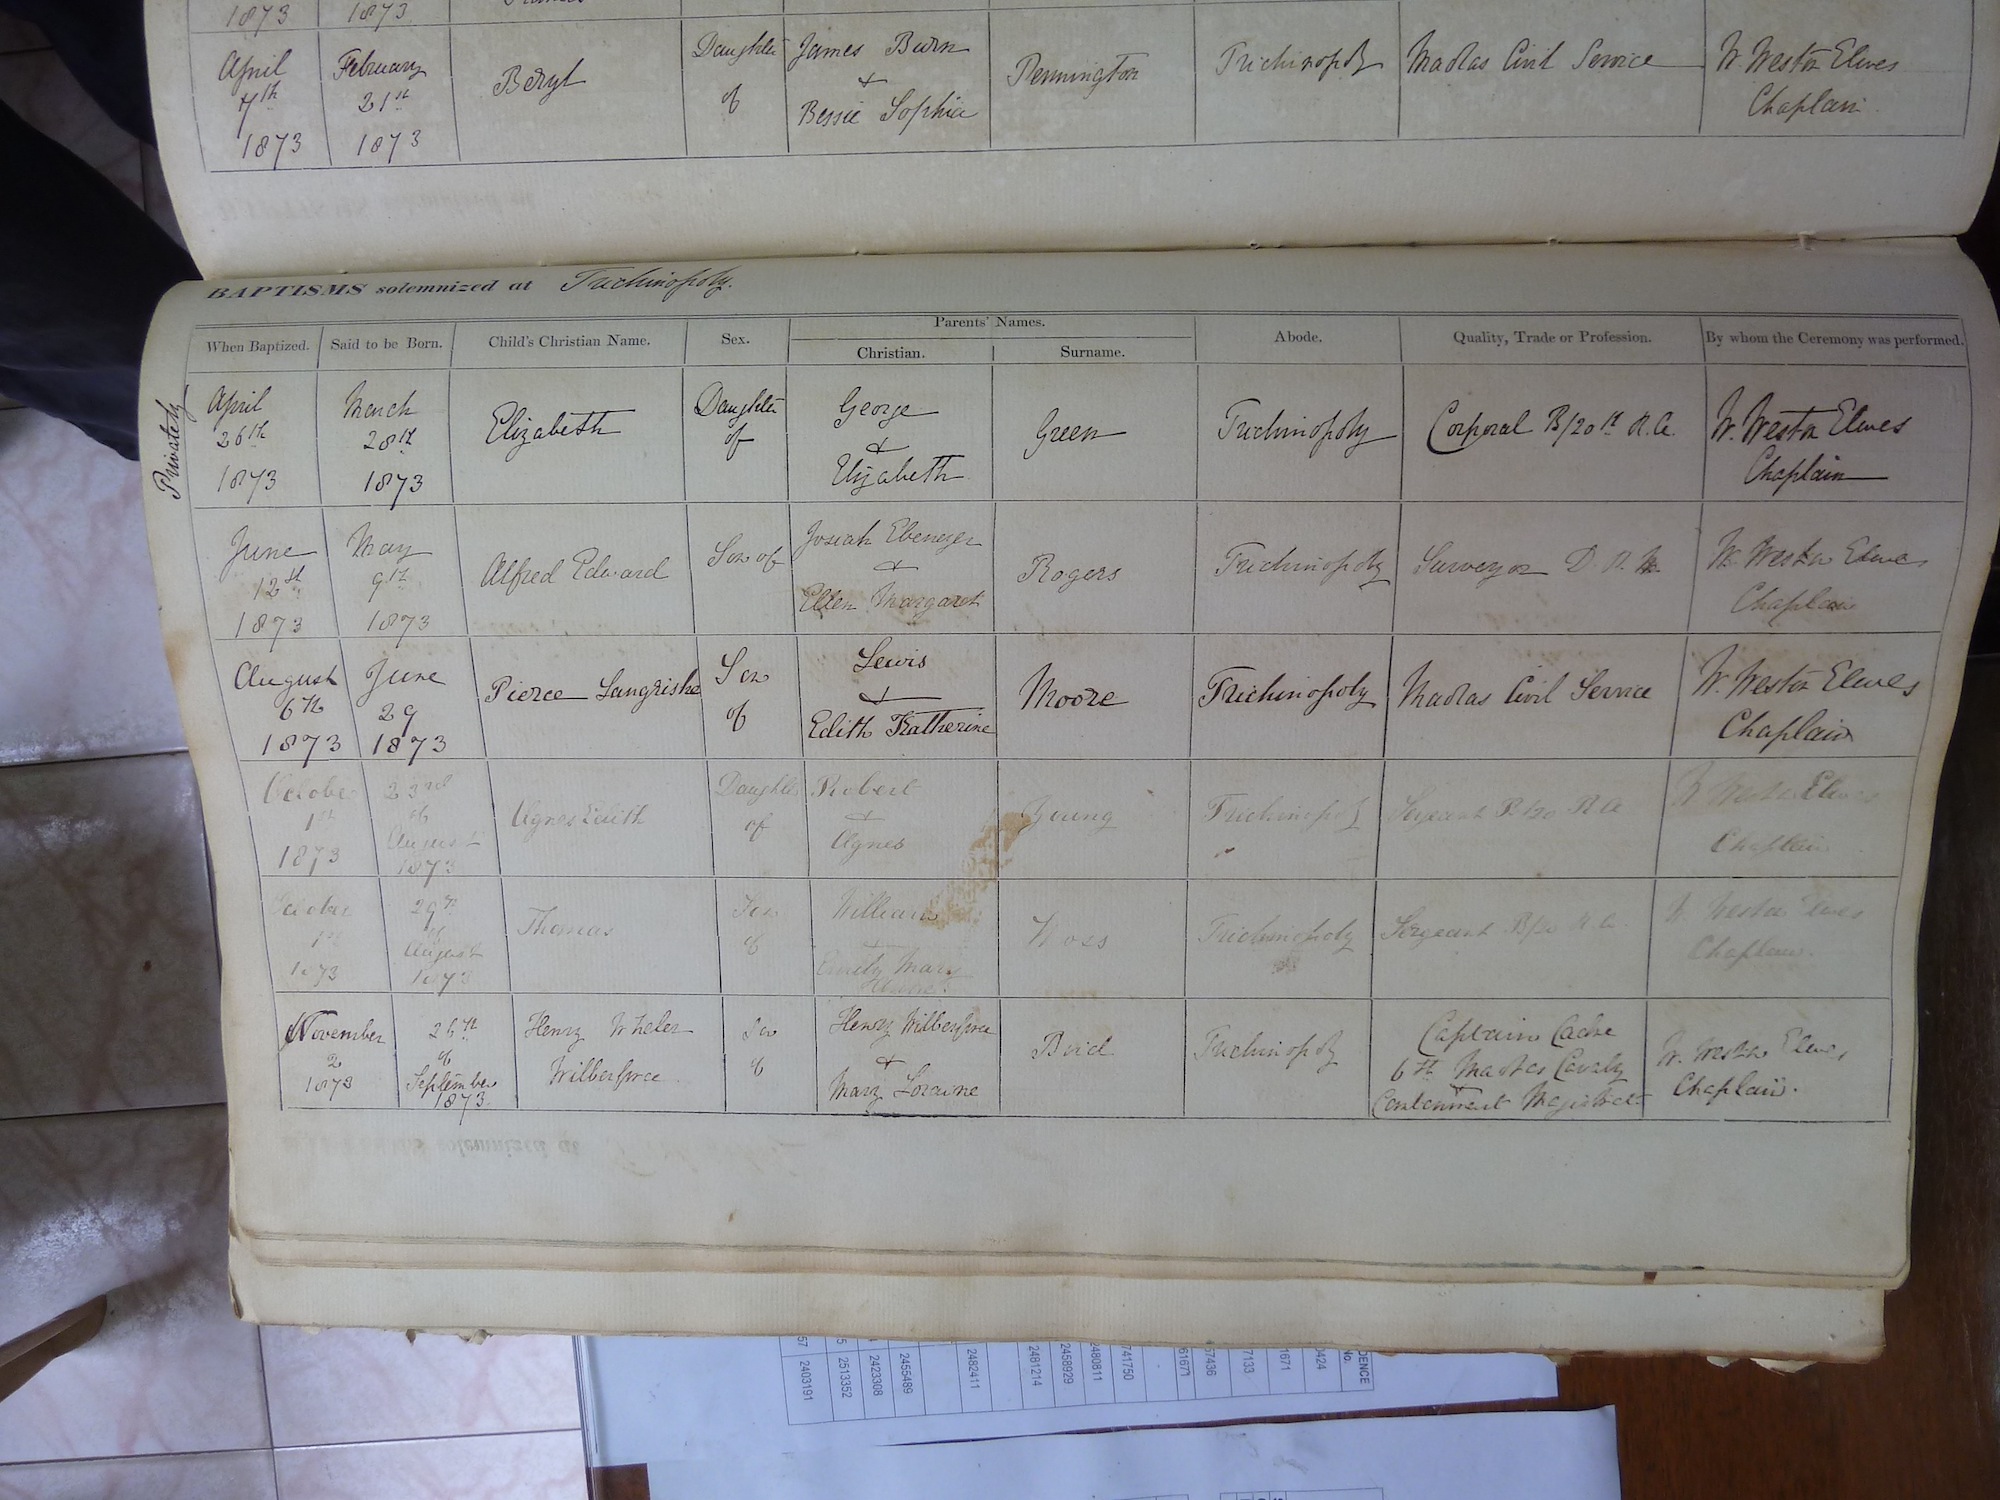 1873 1873
April 7th 1873 February 21st 1873 Beryl Daughter of James Burn & Bessie Sophia Pennington Trichinopoly Madras Civil Service W. Weston Elwes Chaplain
BAPTISMS solemnized at Trichinopoly.
When Baptized. Said to be Born. Child's Christian Name. Sex. Parents' Names. Christian. Surname. Abode. Quality, Trade or Profession. By whom the Ceremony was performed.
Privately
April 26th 1873 March 28th 1873 Elizabeth Daughter of George & Elizabeth Green Trichinopoly Corporal B/20th R.A. W. Weston Elwes Chaplain
June 12th 1873 May 9th 1873 Alfred Edward Son of Josiah Ebenezer & Ellen Margaret Rogers Trichinopoly Surveyor D. P. W. W. Weston Elwes Chaplain
August 6th 1873 June 29 1873 Pierce Langrishe Son of Lewis & Edith Katherine Moore Trichinopoly Madras Civil Service W. Weston Elwes Chaplain
October 1st 1873 23rd of August 1873 Agnes Edith Daughter of Robert & Agnes Young Trichinopoly Sergeant B/20 R.A. W Weston Elwes Chaplain
October 1st 1873 29th of August 1873 Thomas Son of William & Emily Mary Trichinopoly Sergeant B/20 R.A. W. Weston Elwes Chaplain.
November 2 1873 26th of September 1873 Henry Wheler Wilberforce Son of Henry Wilberforce & Mary Loraine Bird Trichinopoly Captain 6th Madras Cavalry Cantonment Magistrate W. Weston Elwes Chaplain.
57 2403191
2513352
2423308
2455489
2482411
2481214
2458929
2480811
741750
61677
57436
7133
1671
0424
DENCE No.